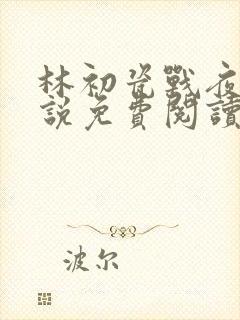 林初瓷戰夜
說免費閱讀
波尔